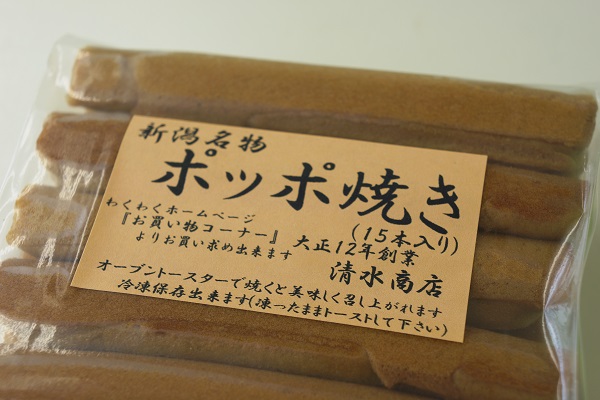 新潟名物
ポッポ焼き
(15本入り)
わくわくホームページ
『お買い物コーナー』
よりお買い求め出来ます
大正12年創業
清水商店
オーブントースターで焼くと美味しく召し上がれます
冷凍保存出来ます(凍ったままトーストして下さい)